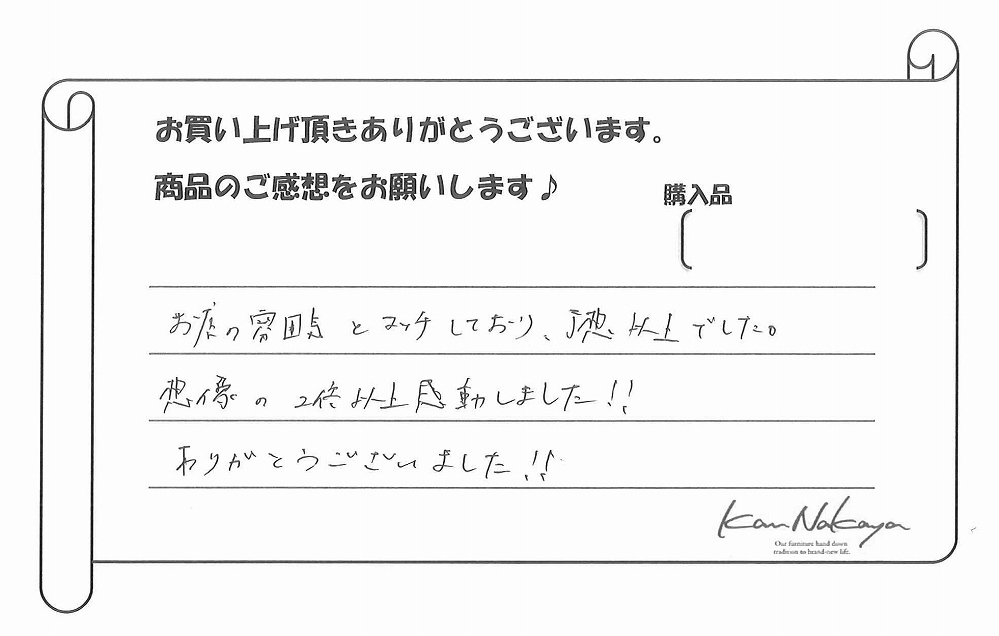 お買い上げ頂きありがとうございます。
商品のご感想をお願いします♪
購入品
お店の雰囲気とマッチしており、予想以上でした。
想像の2倍以上感動しました!!
ありがとうございました!!
Kan Nakaya
Our furniture hand down
tradition to brand-new life.